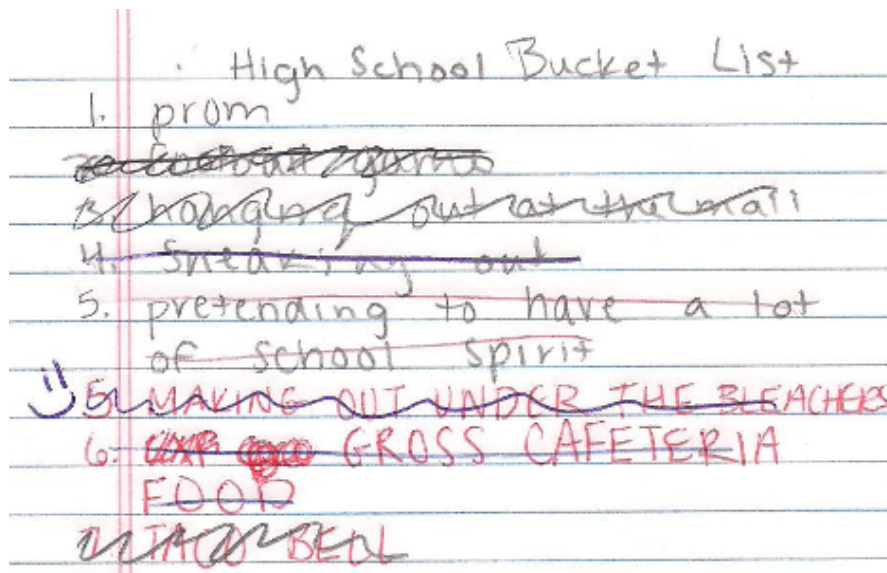 High School Bucket List
1. prom
2. football game
3. hanging out at the mall
4. Sneaking out
5. pretending to have a lot
of school spirit
5. MAKING OUT UNDER THE BLEACHERS
6. GROSS CAFETERIA
FOOD
7. TACO BELL